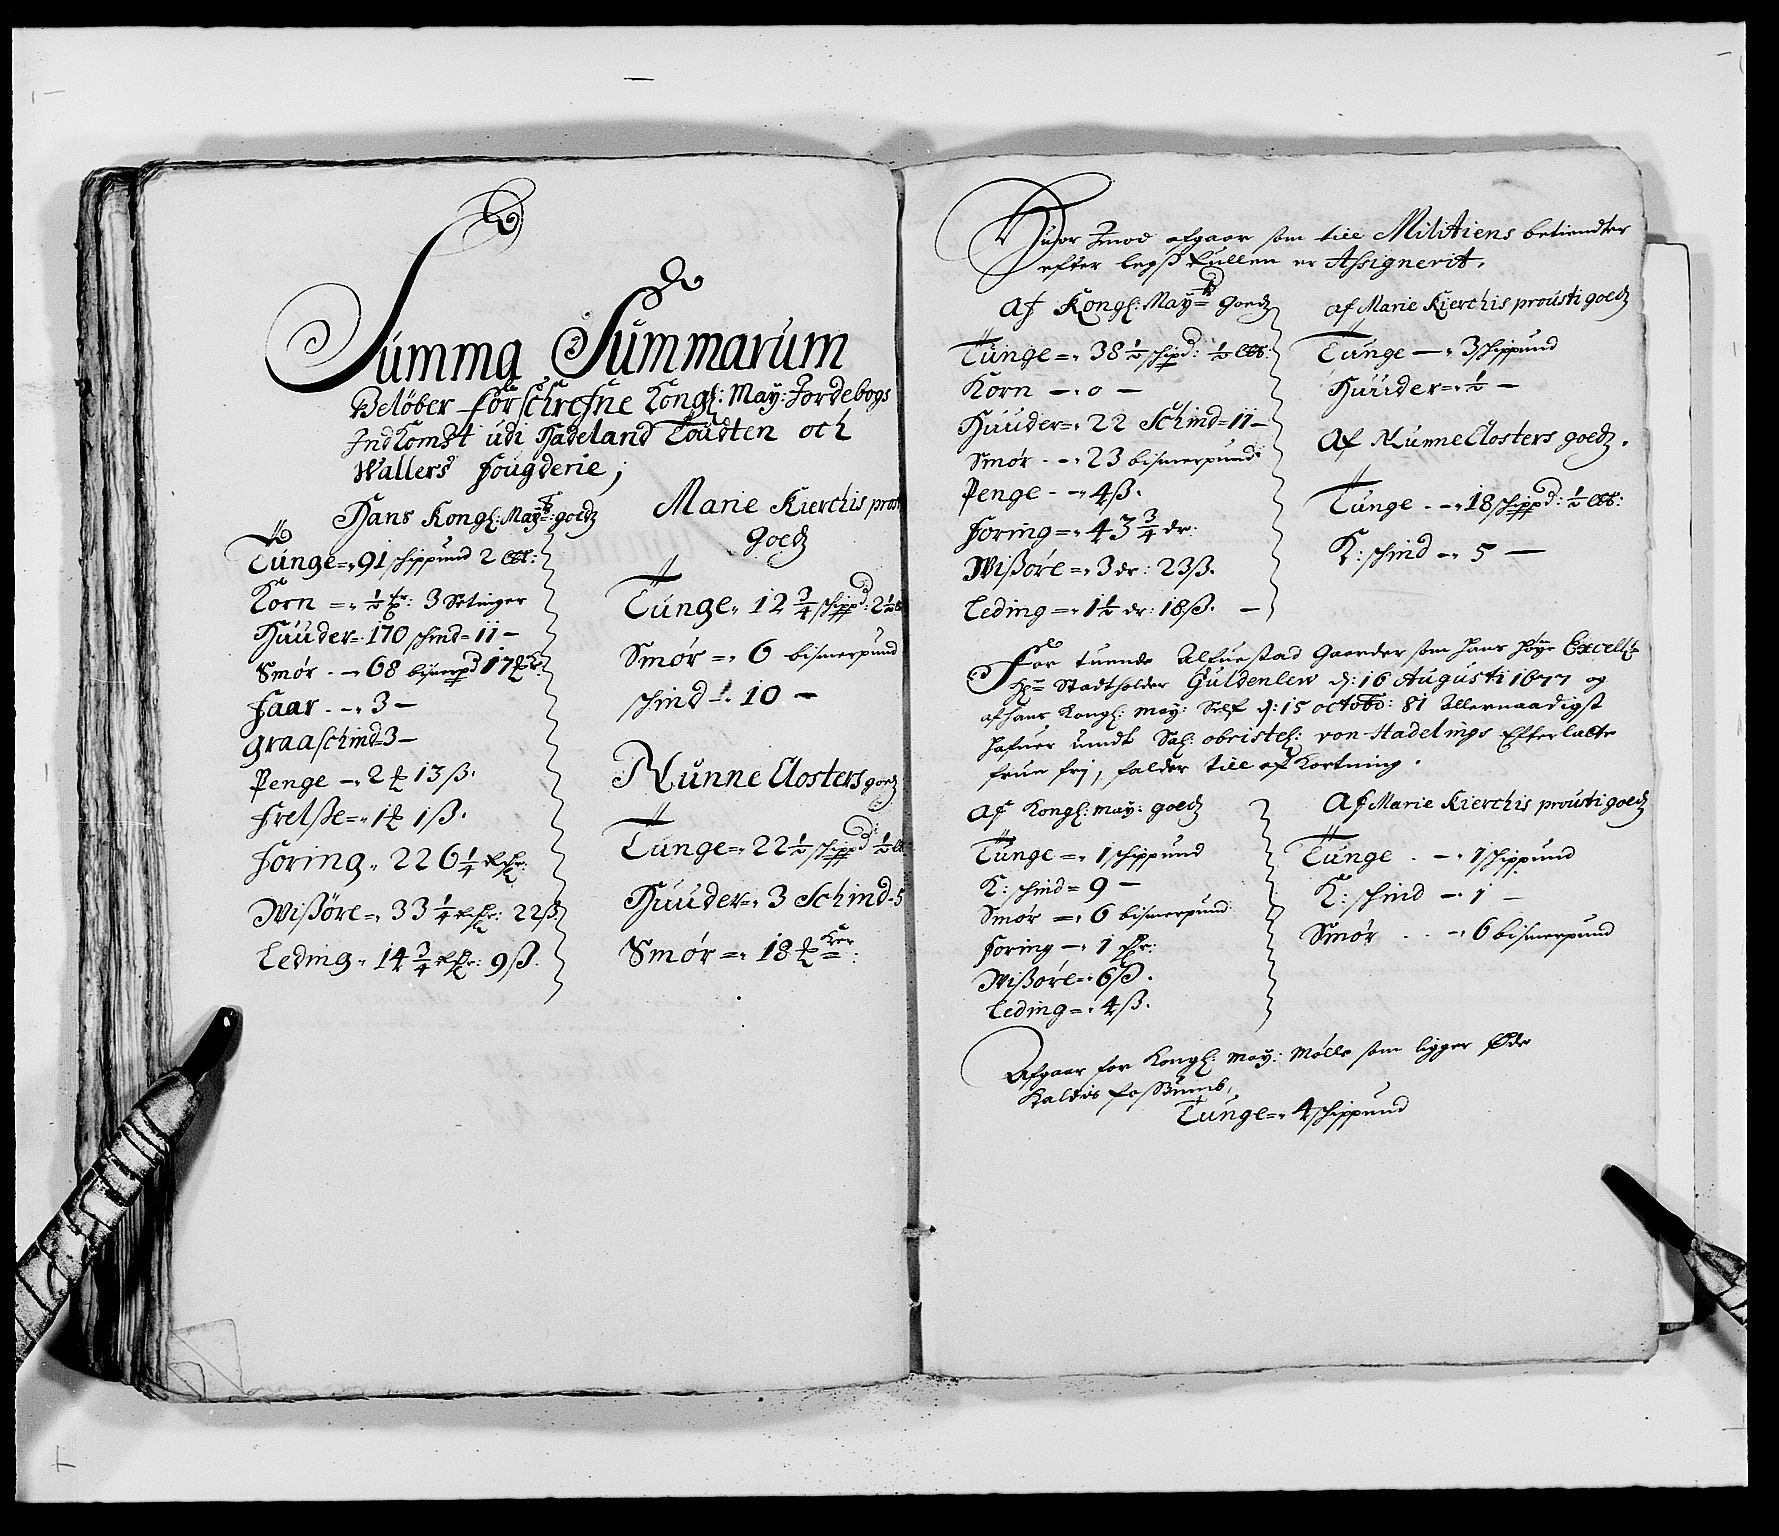 Summa Summarum
Beløber forschrefne Kongl: May: Jordebogs
Indkomst udi Hadeland Toudten och
Wallers Fougderie;
Hans Kongl: Maytz: goedz
Tunge =" 91 schippund 2 lb:
Korn =" ½ tr: 3 Setinger
Huuder =" 170 schind = 11 –
Smør - –" 68 bismerpd 17
Faar - –" 3 –
Graaschind = 3 –
Penge –" 2 13 ß.
Frelße =" 1 1 ß.
Foring " 226 ¼
Wißøre =" 33 ¼ : 22 ß
Leding " 14 ¾ : 9 ß.
Marie Kierchis prou
Goedz
Tunge " 12 ¾ schippd: 2 ½
Smør =" 6 bismerpund
schind –" 10 –
Nunne Closters goedz
Tunge =" 22 ½ schippd: ½
Huuder =" 3 Schind = 5
Smør =" 18
Huor Jmod afgaar som till Militiens betiendter
efter legß Rullen er Assignerit.
Af Kongl: Maytz goedz
Tunge =" 38 ½ schipd: ½ lb:
Korn –" 0 –
Huuder =" 22 Schind = 11 –
Smør - –" 23 bismerpund
Penge - –" 4 ß.
Foring =" 43 ¾ dr:
Wißøre =" 3 dr: 23 ß.
Leding =" 1 ½ dr: 18 ß. –
af Marie Kierchis prousti goedz
Tunge –" 3 schippund
Huuder =" ½ –
Af Nunne Closters goedz.
Tunge - –" 18 schippd: ½ lb:
K: schind –" 5 –
For tuende Alfuestad Gaarder som hans høye Excelltz
Hr Stadtholder Güldenlew d: 16 Augusti 1677 og
af hans Kongl: May: Self d: 15 octobr: 81 Allernaadigst
hafuer undt Sal: obristel: von Stadelings Efterlatte
frue frj, falder till afKortning.
Af Kongl: May: goedz
Tunge =" 1 schippund
K: schind = 9 –
Smør =" 6 bismerpund
Foring –" 1
Wißøre =" 6 ß.
Leding =" 4 ß.
Af Marie Kierchis prousti goedz
Tunge - –" 1 schippund
K: schind –" 1 –
Smør - - –" 6 bismerpund
Afgaar for Kongl: May: Mølle som ligger Øde
Kaldis
Tunge =" 4 schippund